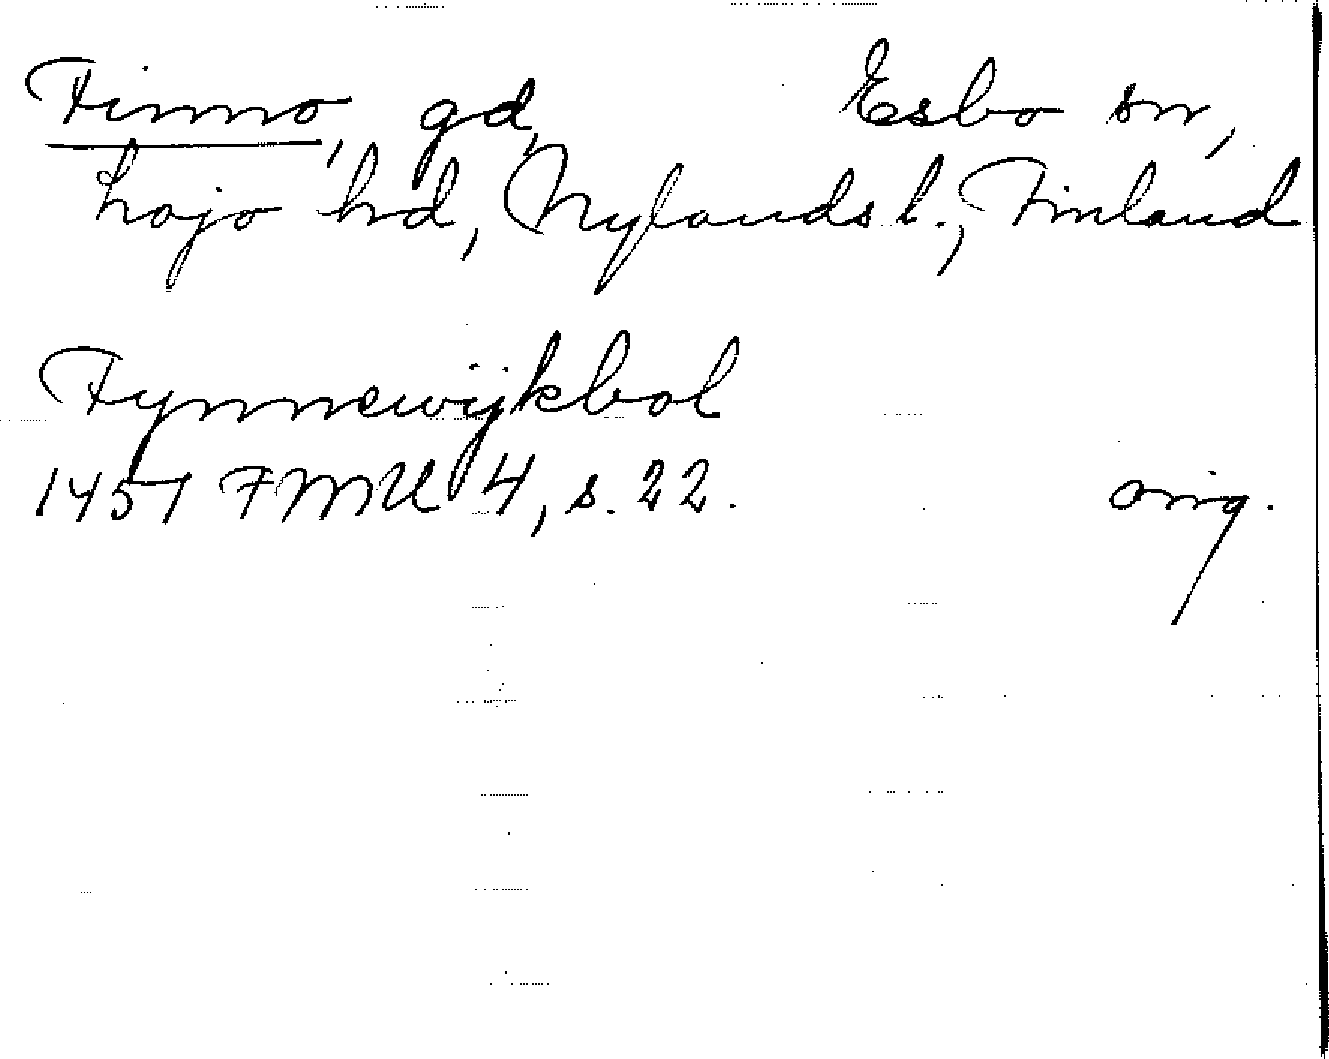 Finno, gd, Esbo sn,
Lojo hd, Nylands l., Finland
Fynnewijkbol
1451 FMU 4, s. 22. orig.